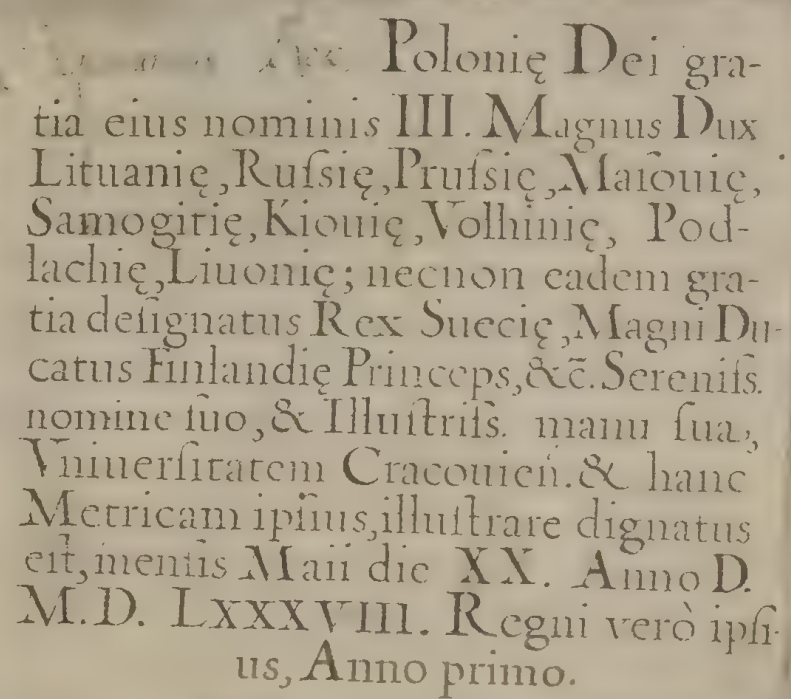 Polonię Dei gra-
tia eius nominis III. Magnus Dux
Lituanię, Ruſsię, Pruſsię, Maſouię,
Samogitię, Kiouię, Volhinię, Pod-
lachię, Liuonię; necnon eadem gra-
tia deſignatus Rex Suecię, Magni Du-
catus Finlandię Princeps, &c̃. Sereniſs.
nomine ſuo, & Illuſtriſs. manu ſua,
Vniuerſitatem Cracouień. & hanc
Metricam ipſius, illuſtrare dignatus
eſt, menſis Maii die XX. Anno D.
M.D. LXXXVIII. Regni verò ipſi-
us, Anno primo.